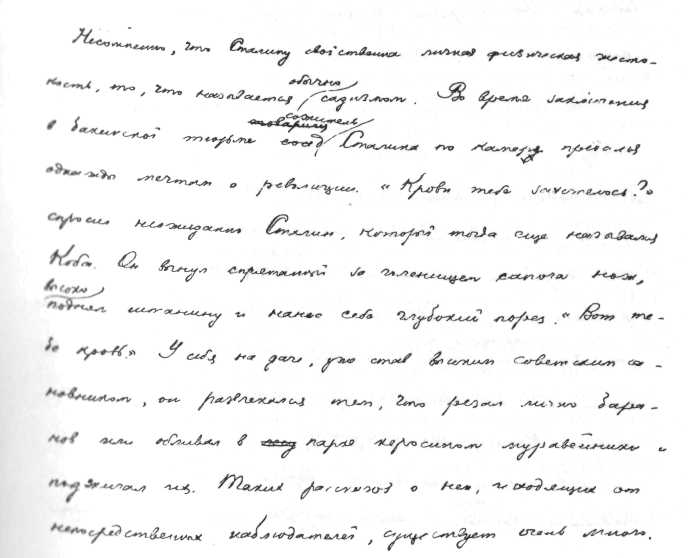 Несомненно, что Сталину свойственна личная физическая жесто-
кость, то, что называется обычно садизмом. Во время заключения
в бакинской тюрьме сосед сожитель Сталина по камере предался
однажды мечтам о революции. "Крови тебе захотелось?"
спросил неожиданно Сталин, который тогда еще назывался
Коба. Он вынул спрятанный за голенищем сапога нож,
высоко поднял штанину и нанес себе глубокий порез. "Вот те-
бе кровь" У себя на даче, уже став высоким советским са-
новником, он развлекался тем, что резал лично бара-
нов или обливал в парке керосином муравейники и
поджигал их. Таких рассказов о нем, исходящих от
непосредственных наблюдателей, существует очень много.